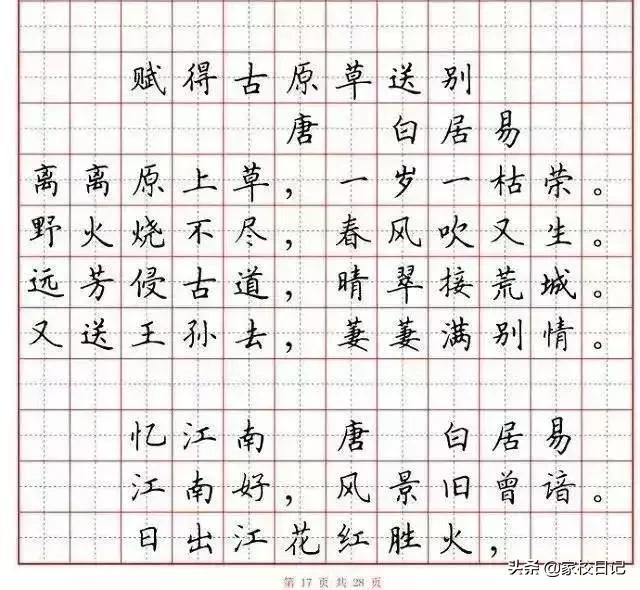 赋得古原草送别
唐 白居易
离离原上草，一岁一枯荣。
野火烧不尽，春风吹又生。
远芳侵古道，晴翠接荒城。
又送王孙去，萋萋满别情。
忆江南 唐 白居易
江南好，风景旧曾谙。
日出江花红胜火，
头条 @家校日记
第 17 页 共 28 页